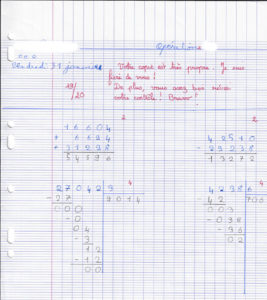 Opérations
Vendredi 31 janvier
Votre copie est très propre. Je suis
fière de vous !
19/20
De plus, vous avez bien réussi
votre contrôle ! Bravo !
2
2
16604
+ 6694
+ 31298
54596
42510
- 29238
13272
4
4
27042 3
- 27 9014
000
- 0
04
- 3
12
- 12
00
42386
- 42 706
003
- 038
- 36
02